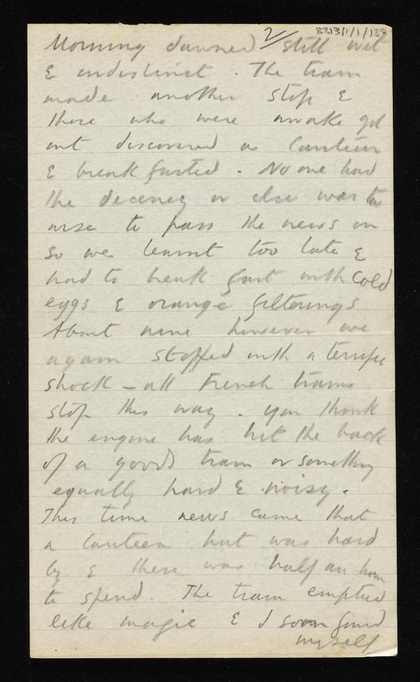 2/
Morning dawned still wet
& indistinct. The train
made another stop &
those who were awake got
out discovered a Canteen
& breakfasted. No one had
the decency or else was too
wise to pass the news on
so we learnt too late &
had to break fast with cold
eggs & orange
About nine however we
again stopped with a terrific
shock - all French trains
stop this way. You think
the engine has hit the back
of a goods train or something
equally hard & noisy.
This time news came that
a Canteen hut was hard
by & there was half an hour
to spend. The train emptied
like magic & I soon found
myself